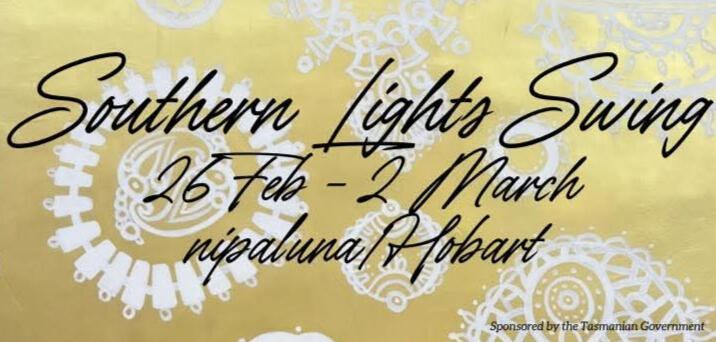 Southern Lights Swing
26 Feb - 2 March
nipaluna/Hobart
Sponsored by the Tasmanian Government